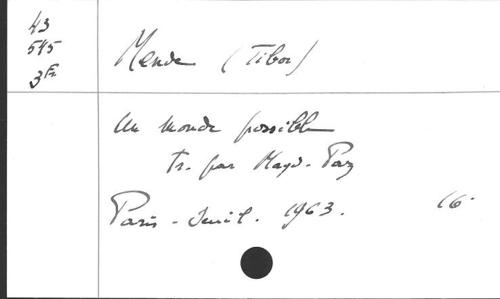 43
545
3 Fr
Mende (Tibor)
Un monde possible
Tr. par Magd. Paz
Paris - Seuil. 1963. 16.